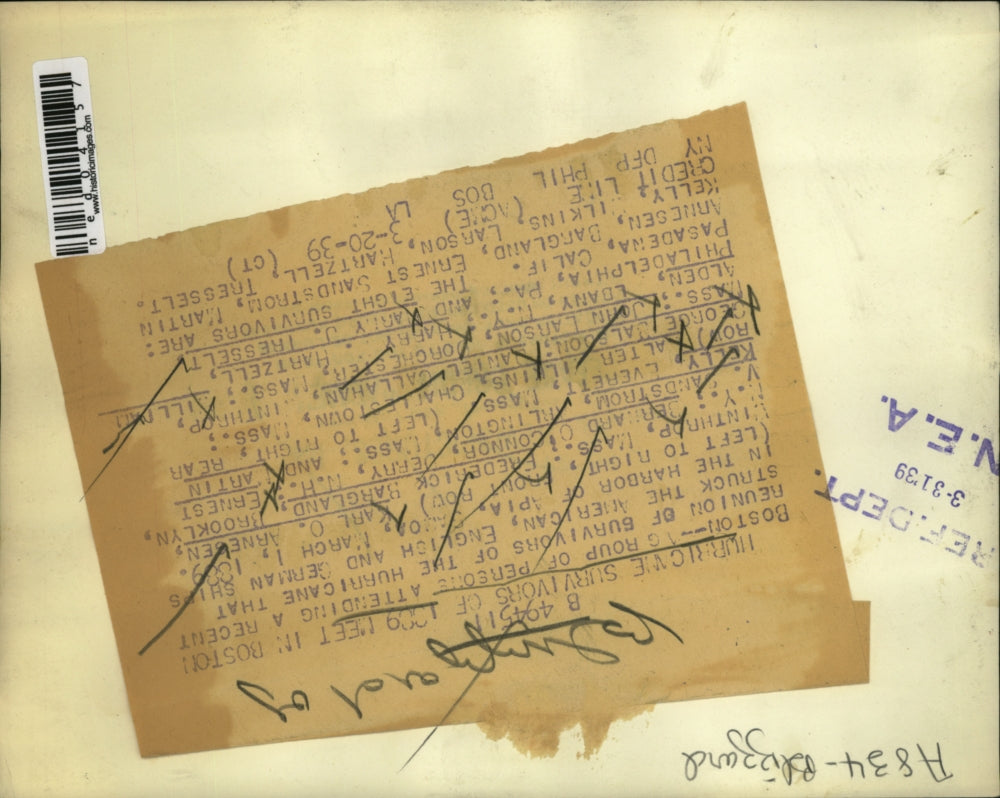 Blizzards and
B 494511
HURRICANE SURVIVORS OF 1889 MEET IN BOSTON
BOSTON--A GROUP OF PERSONS ATTENDING A RECENT
REUNION OF SURVIVORS OF THE HURRICANE THAT
STRUCK THE AMERICAN, ENGLISH AND GERMAN SHIPS
IN THE HARBOR OF APIA, SAMOA, MARCH 1, 1889.
(LEFT TO RIGHT, FRONT ROW) KARL O. ARNESEN,
WINTHROP, MASS.; FREDERICK BARGLAND, BROOKLYN,
N.Y.; EDWARD O'CONNOR, N.H.; ERNEST
SANDSTROM, ARLINGTON, MASS.; JERRY AND MARTIN
V. KELLY, MASS. (LEFT TO RIGHT, REAR
ROW) EVERETT CHARLESTOWN, MASS.; WILLIAM
GEORGE WALTER WILKINS, DANIEL CALLAHAN, WINTHROP,
MASS.; JOHN LARSON, DORCHESTER, MASS.;
ALDEN, ALBANY, N.Y.; HARRY HARTZELL,
PHILADELPHIA, PA.; AND HARRY J. TRESSELT,
PASADENA, CALIF. THE EIGHT SURVIVORS ARE:
ARNESEN, BARGLAND, LARSON, SANDSTROM, MARTIN
KELLY, WILKINS, ERNEST HARTZELL, TRESSELT.
CREDIT LINE (ACME) 3-20-39 (CT)
NY DFP PHIL BOS LA
A834-Blizzard
REF. DEPT.
3-31-39
N.E.A.
ned04157
www.historicimages.com